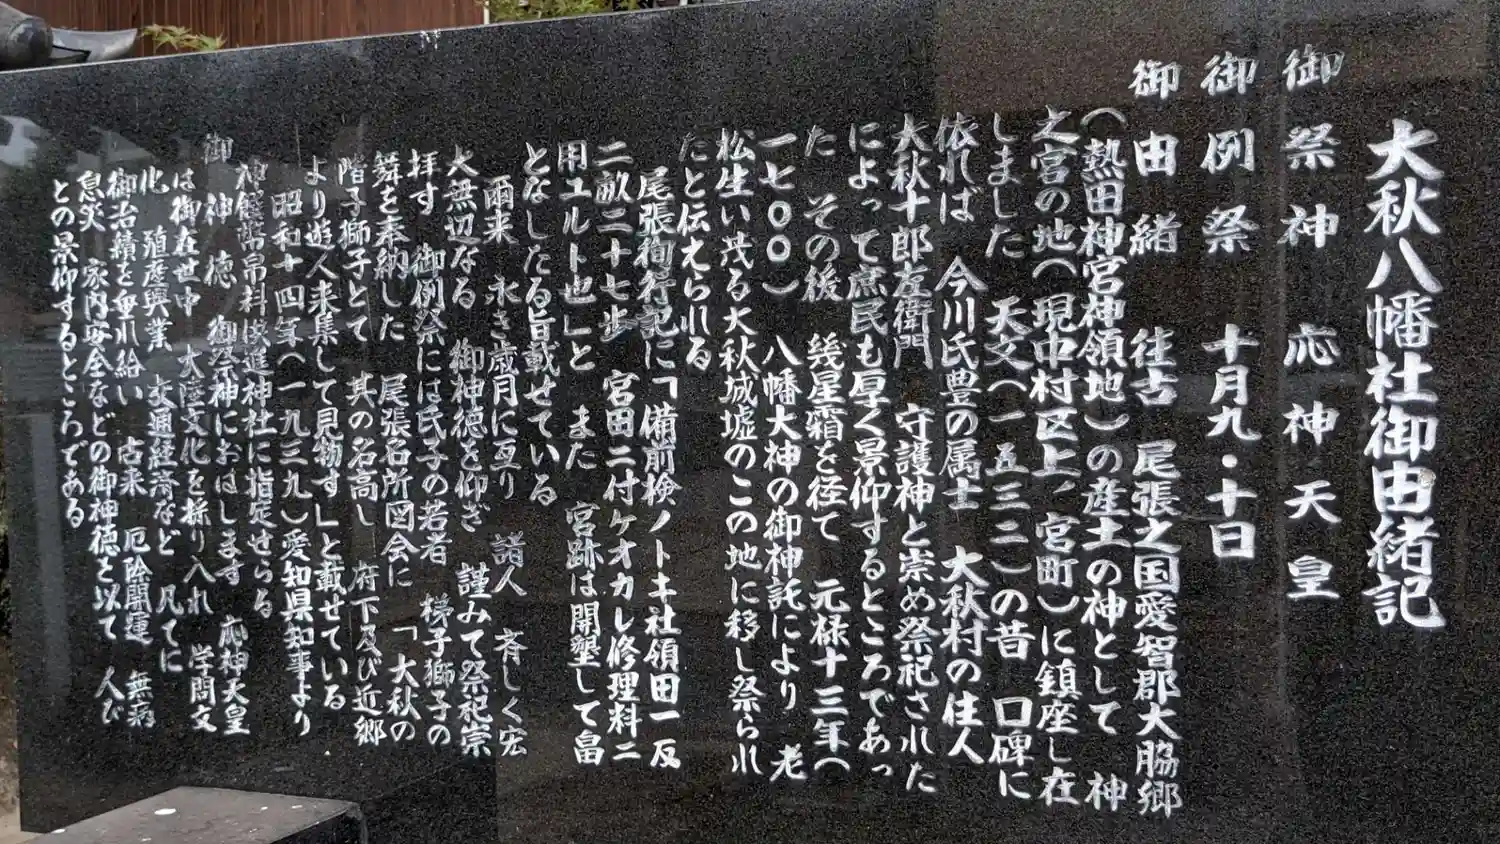 大秋八幡社御由緒記
御祭神 応神天皇
御例祭 十月九・十日
御由緒 往古 尾張之国愛智郡大脇郷
(熱田神宮神領地)の産土の神として 神
之宮の地(現中村区上、宮町)に鎮座し在
しました 天文(一五三二)の昔 口碑に
依れば 今川氏豊の属士 大秋村の住人
大秋十郎左衛門 守護神と崇め祭祀された
によって庶民も厚く景仰するところであっ
た その後 幾星霜を径て 元禄十三年(
一七〇〇) 八幡大神の御神託により 老
松生い茂る大秋城墟のこの地に移し祭られ
たと伝えられる
尾張徇行記に「備前検ノトキ社領田一反
二畝二十七歩 宮田ニ付ケオカレ修理料ニ
用ユルト也」と また 宮跡は開墾して畠
となしたる旨載せている
爾来 永き歳月に亙り 諸人 斉しく宏
大無辺なる 御神徳を仰ぎ 謹みて祭祀崇
拝す 御例祭には氏子の若者 梯子獅子の
舞を奉納した 尾張名所図会に 「大秋の
階子獅子とて 其の名高し 府下及び近郷
より遊人来集して見物す」と載せている
昭和十四年(一九三九)愛知県知事より
神饌幣帛料供進神社に指定せらる
御神徳 御祭神におはします 応神天皇
は御在世中 大陸文化を採り入れ 学問文
化 殖産興業 交通経済など 凡てに
御治績を垂れ給い 古来 厄除開運 無病
息災 家内安全などの御神徳と以て 人び
との景仰するところである